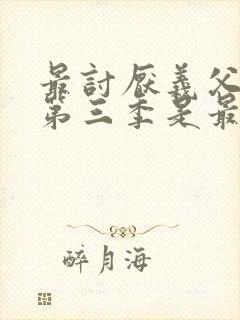 最討厭義父
第三季是最
醉月海